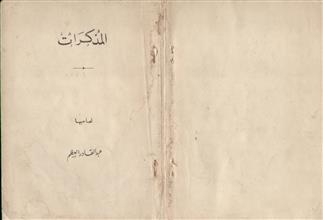 المذكرات
لصاحبها
عبد القادر العظم